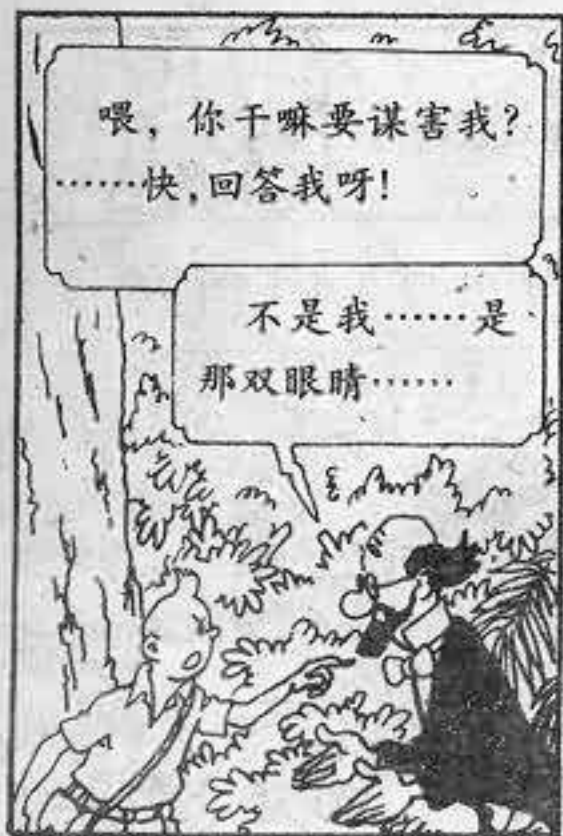 喂，你干嘛要谋害我？
……快，回答我呀！
不是我……是
那双眼睛……